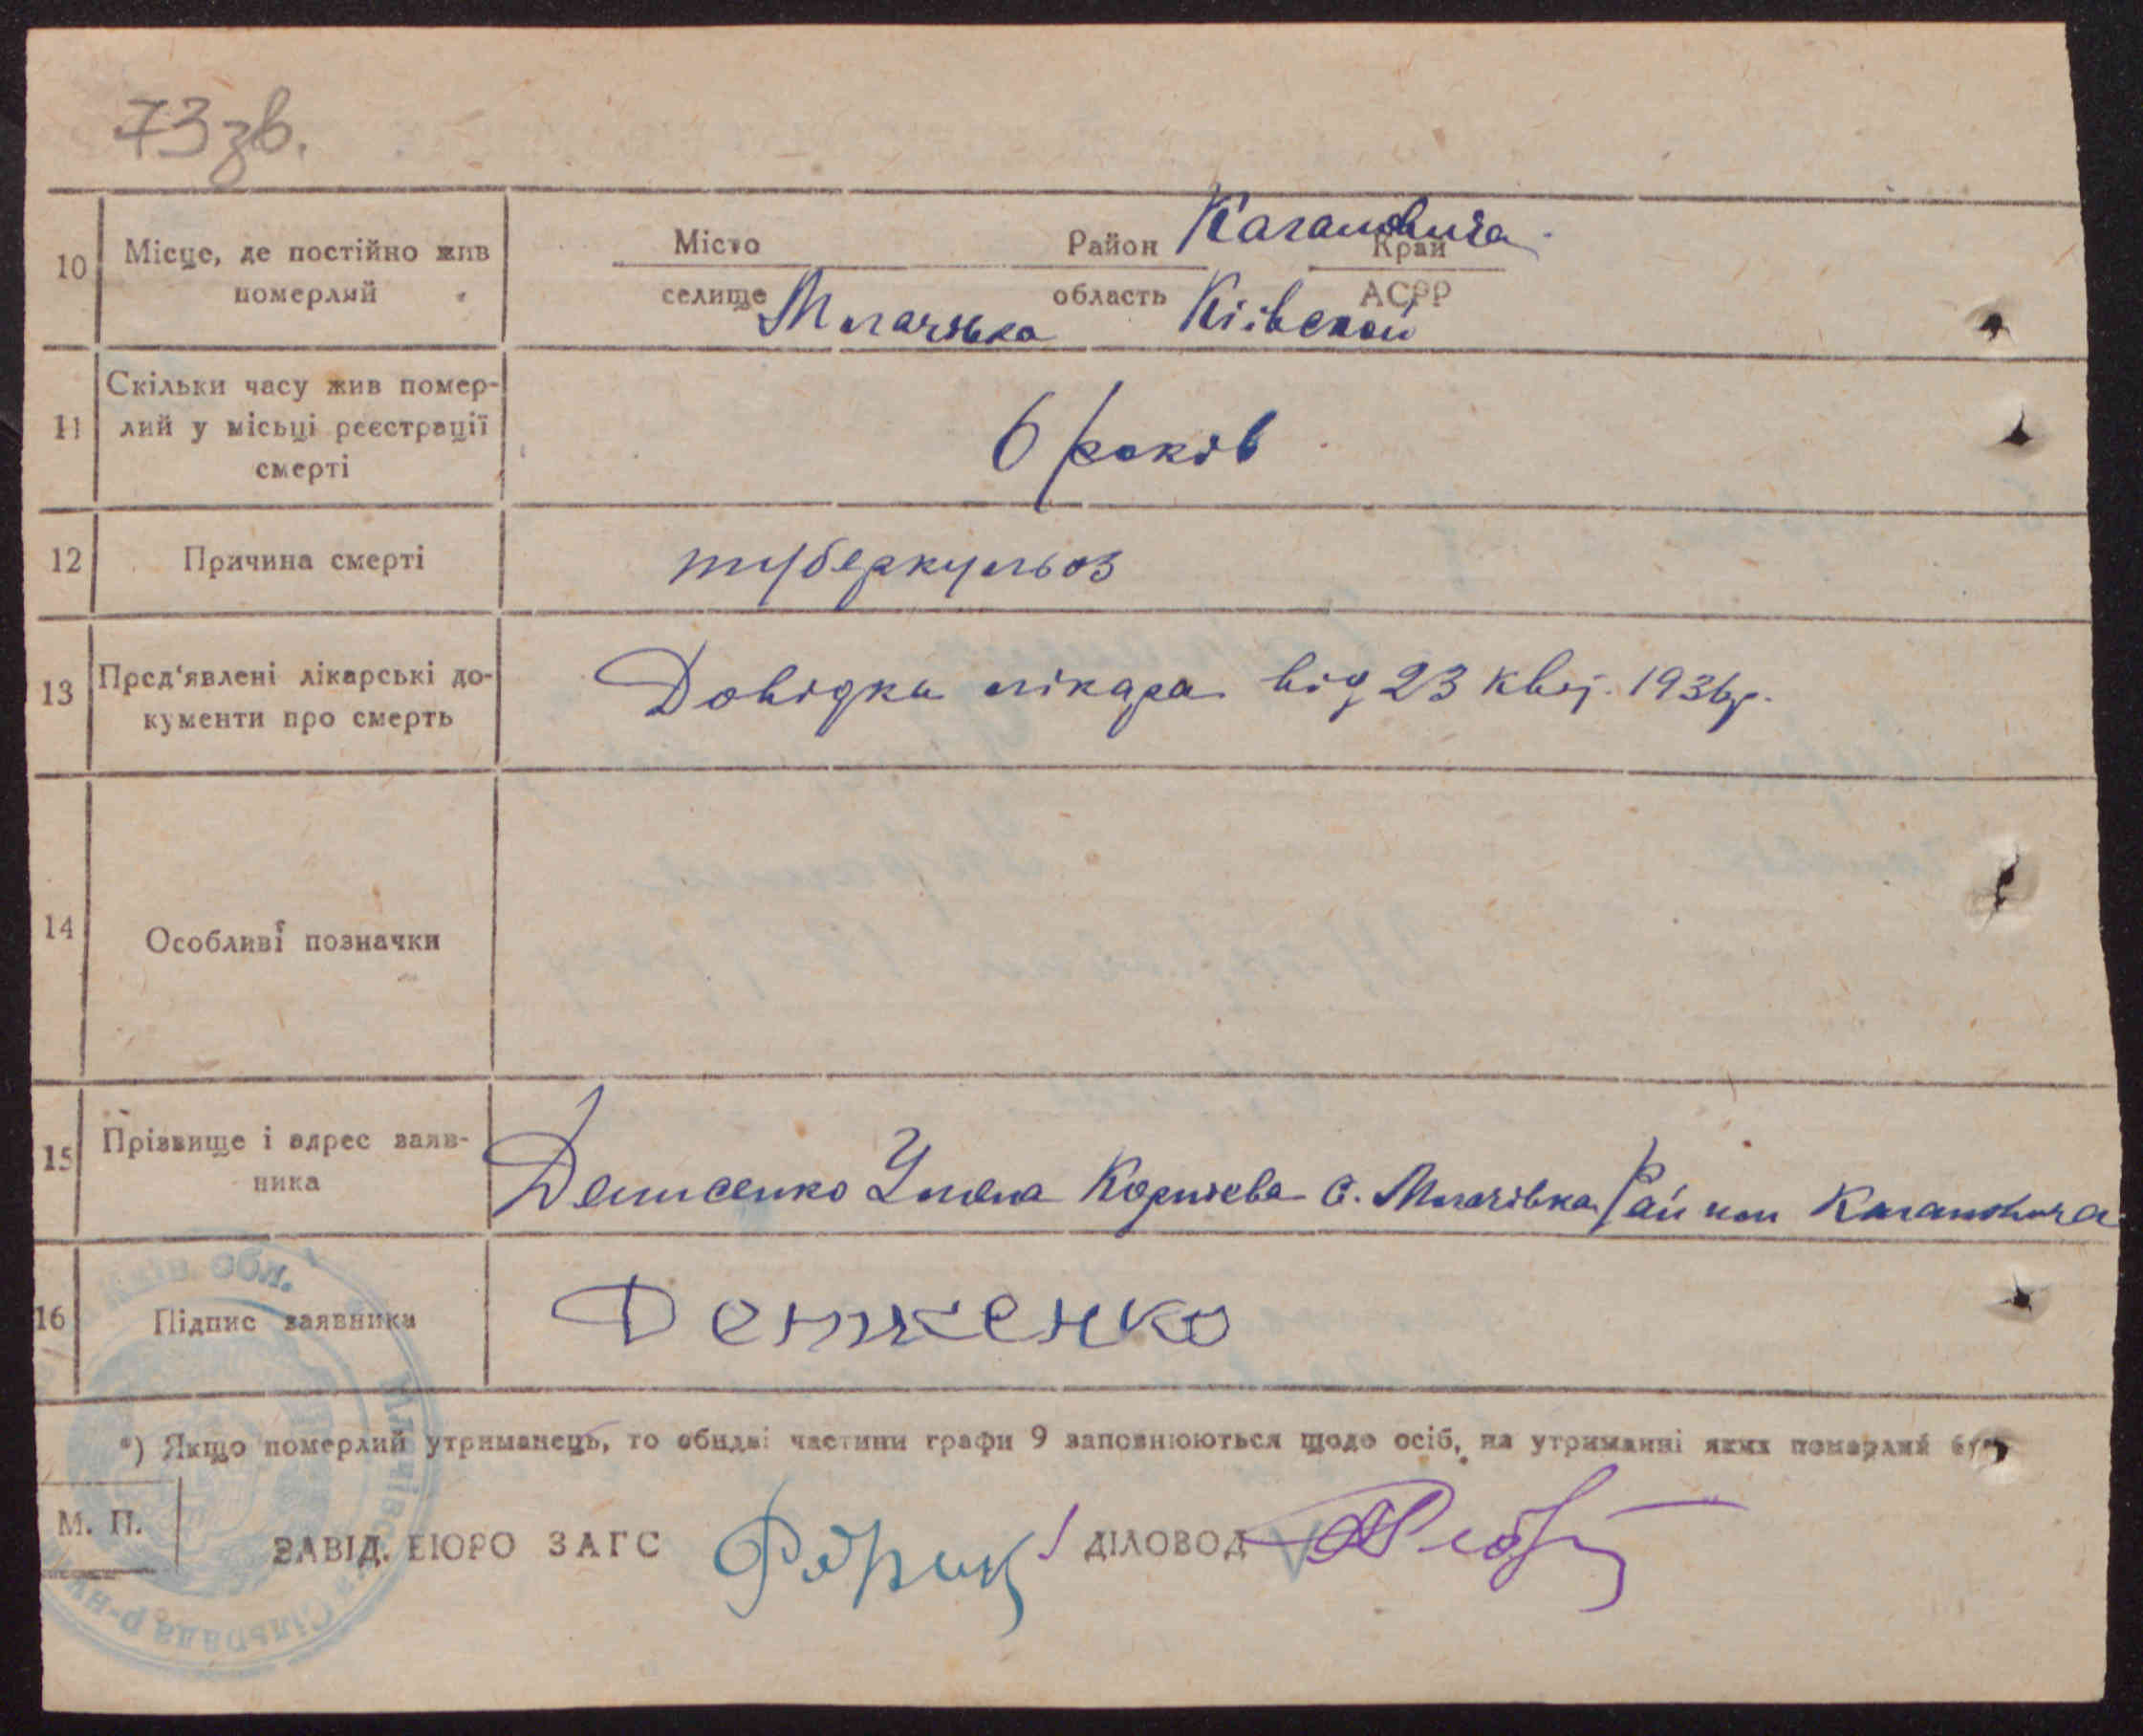 73 зв.
10 Місце, де постійно жив померлий
Місто Район Кагановича Край
селище Млачівка область Київской АСРР
11 Скільки часу жив помер-
лий у місьці реєстрації
смерті
6 років
12 Причина смерті туберкульоз
13 Пред'явлені лікарські до-
кументи про смерть
Довідка лікара від 23 квіт. 1936 р.
14 Особливі позначки
15 Прізвище і адрес заяв-
ника
Денисенко Уляна Корнієва с. Млачівка Рай Кагановича
16 Підпис заявника Денисенко
*) Якщо померлий утриманець, то обидві частини графи 9 заповнюються щодо осіб, на утриманні яких померлий був
М. П.
ЗАВІД. БЮРО ЗАГС ДІЛОВОД
Київ. обл.
Млачівська Сільрада р-ну